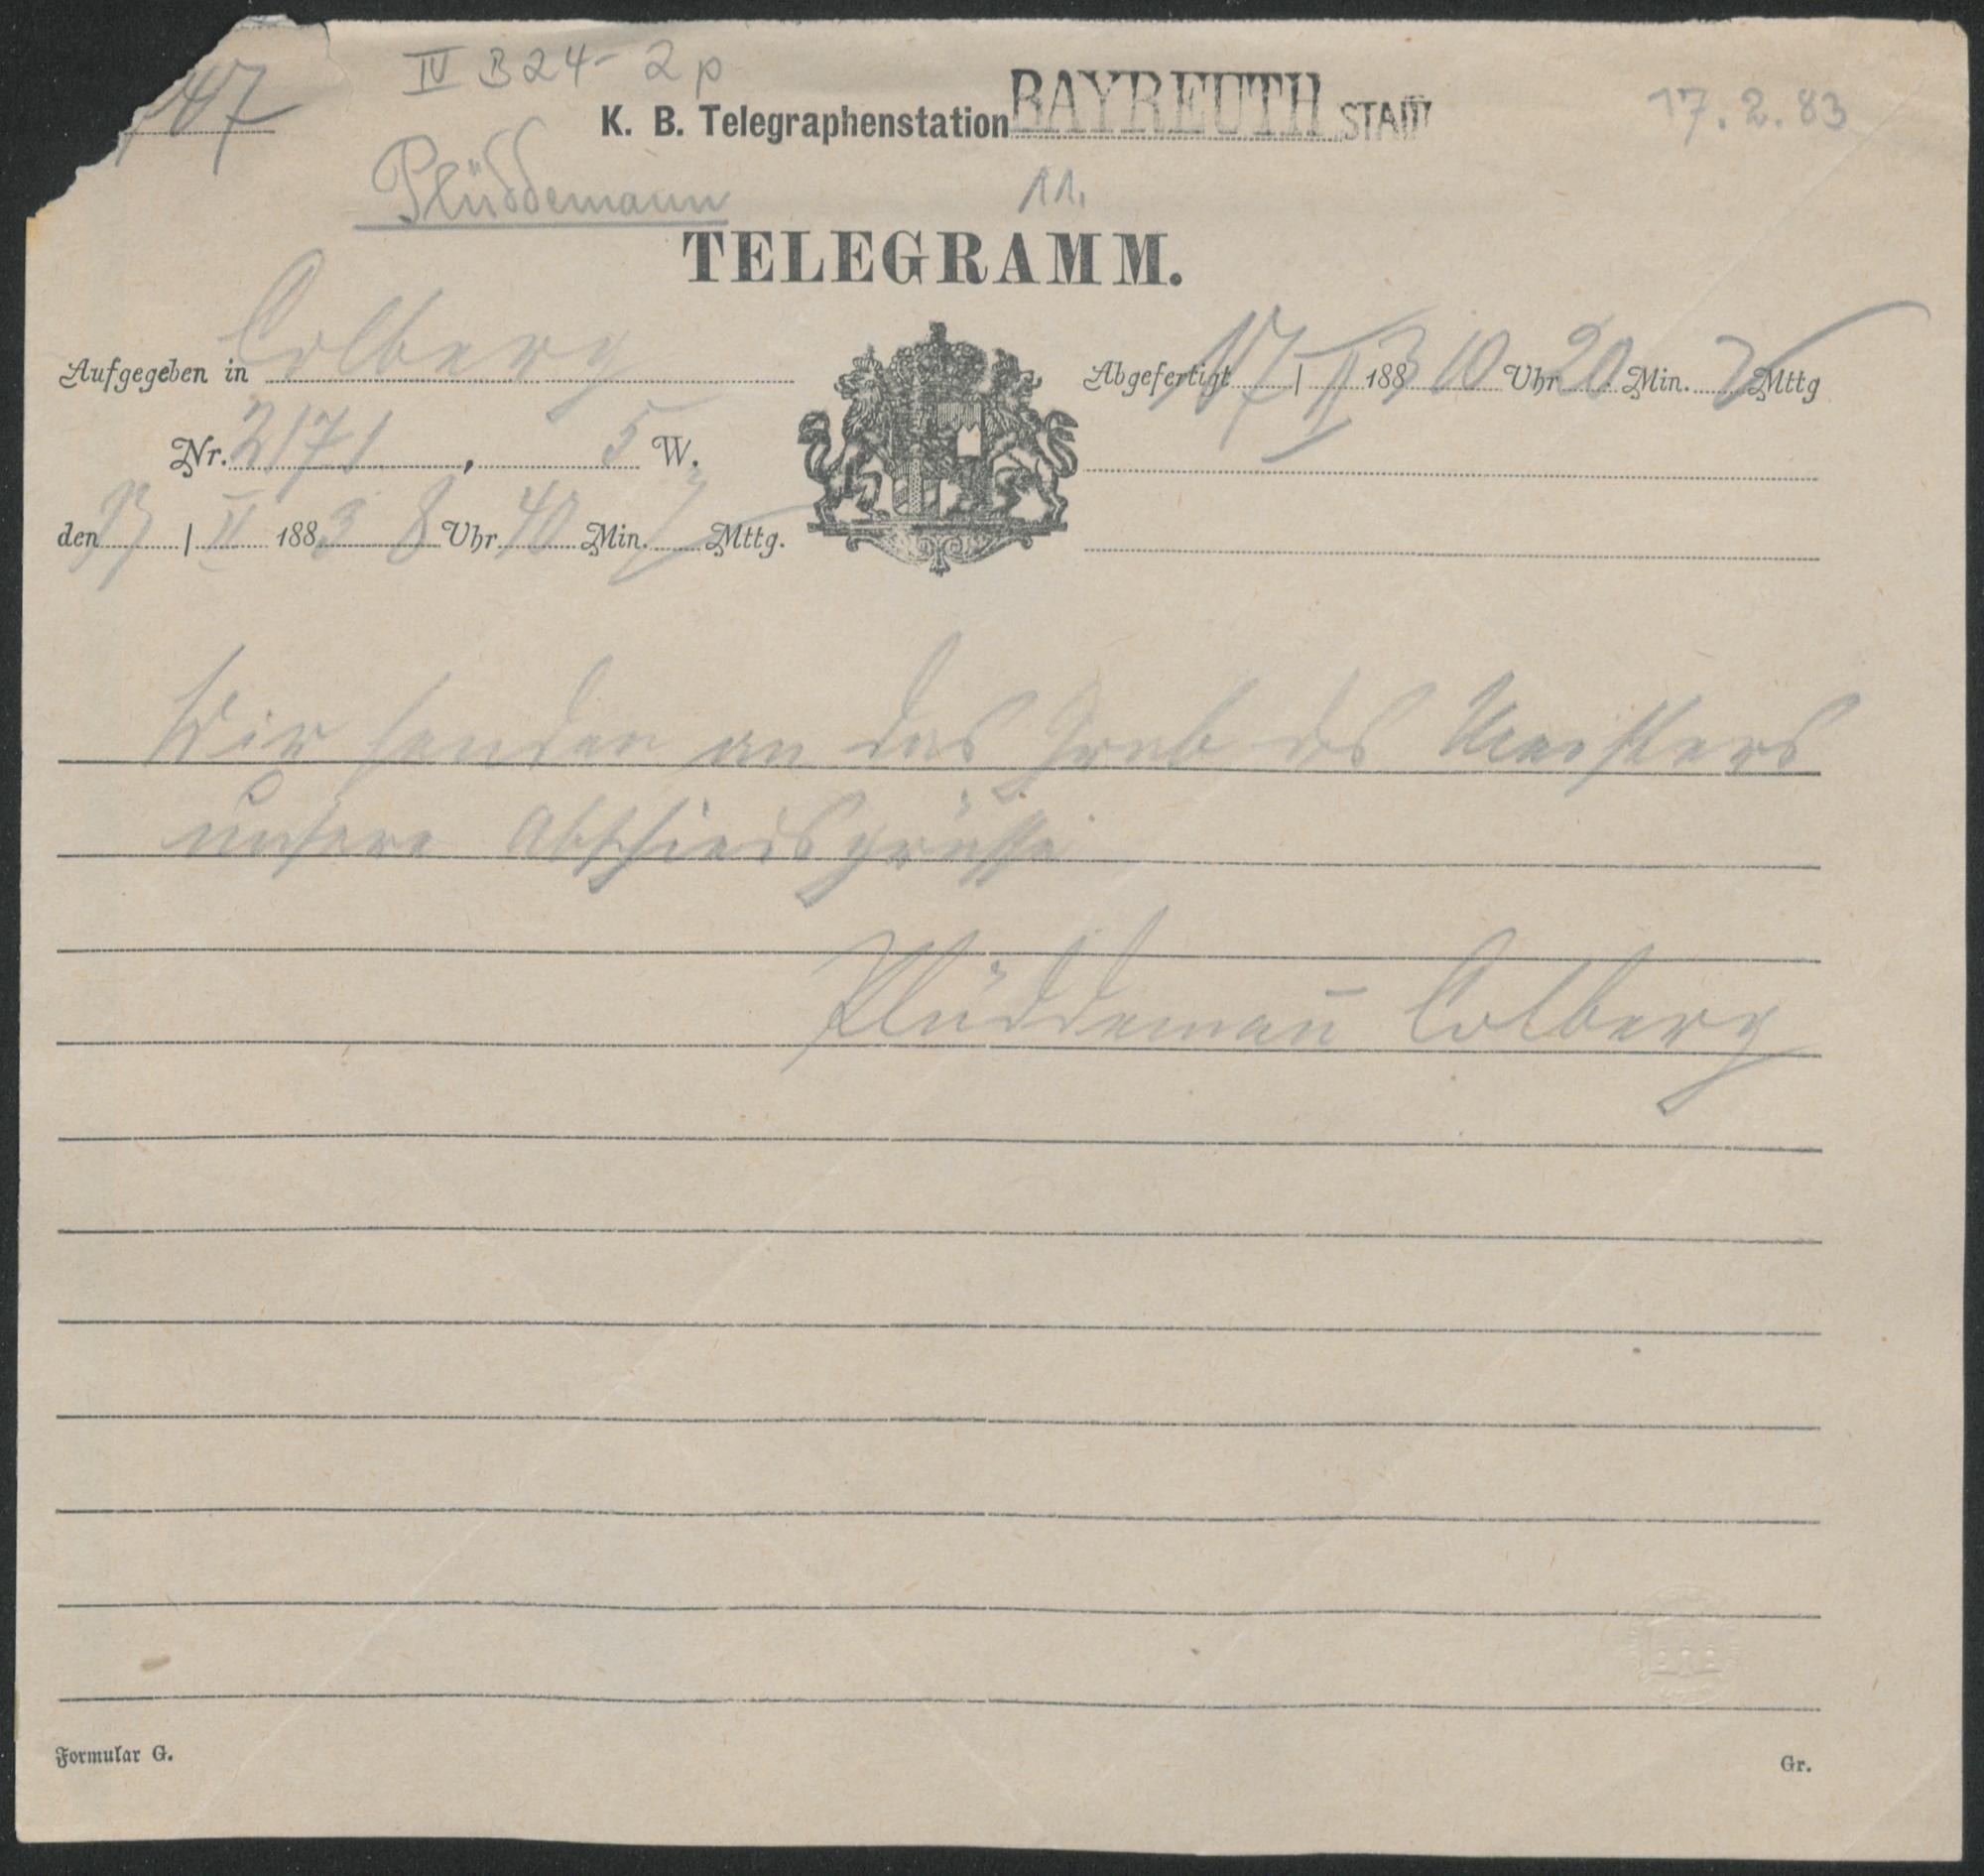 IV B 24-2p
K. B. Telegraphenstation BAYREUTH STADT 17.2.83
Plüddemann 11.
TELEGRAMM.
Aufgegeben in Colberg
Abgefertigt 17 / II 1883 10 Uhr 20 Min. Mttg
Nr. 2171, 5 W.
den 17 / II 1883 8 Uhr 40 Min. Mttg.
Wir senden an das Grab des Meisters
unsere Abschiedsgrüsse
Plüddeman̄ Colberg
Formular G.
Gr.